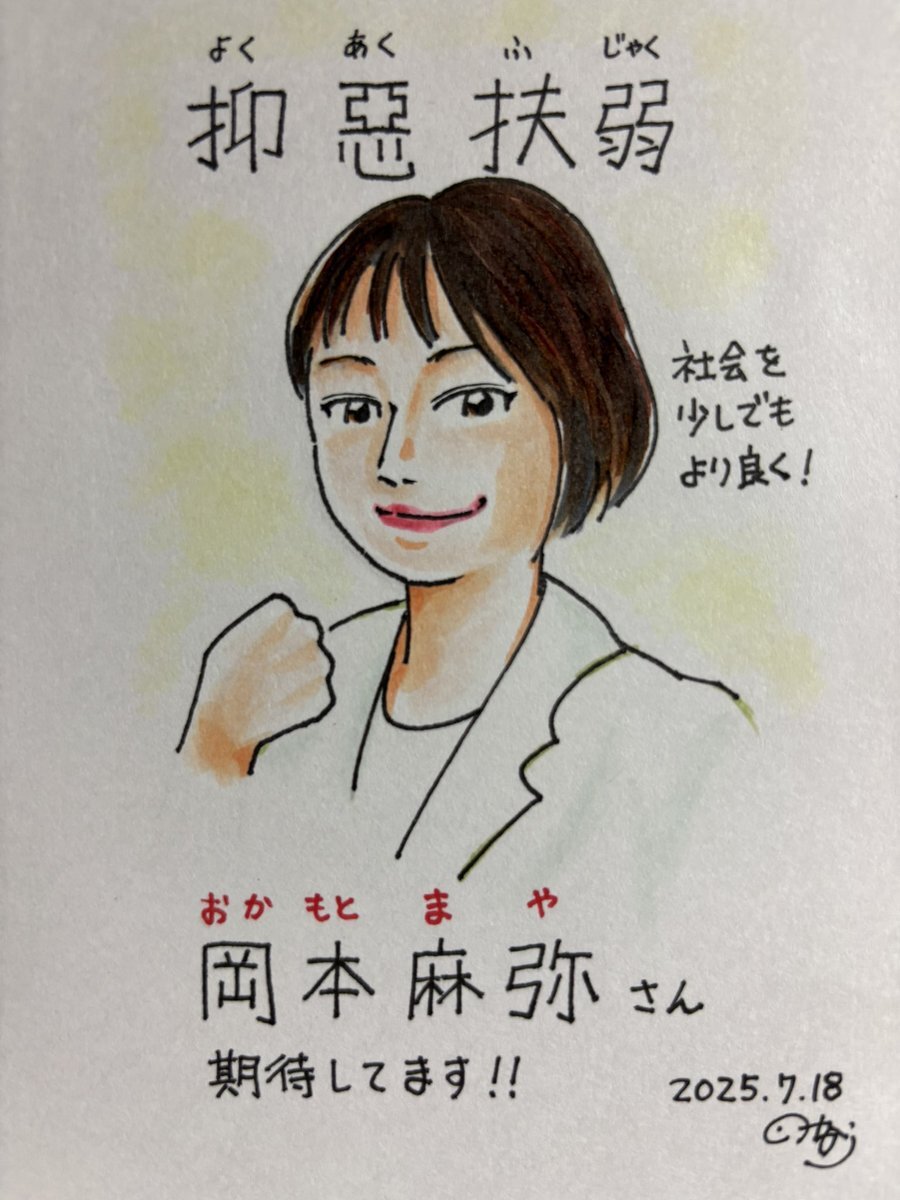 よく あく ふ じゃく
抑惡扶弱
社会を
少しでも
より良く！
おか もと ま や
岡本麻弥さん
期待してます!!
2025.7.18